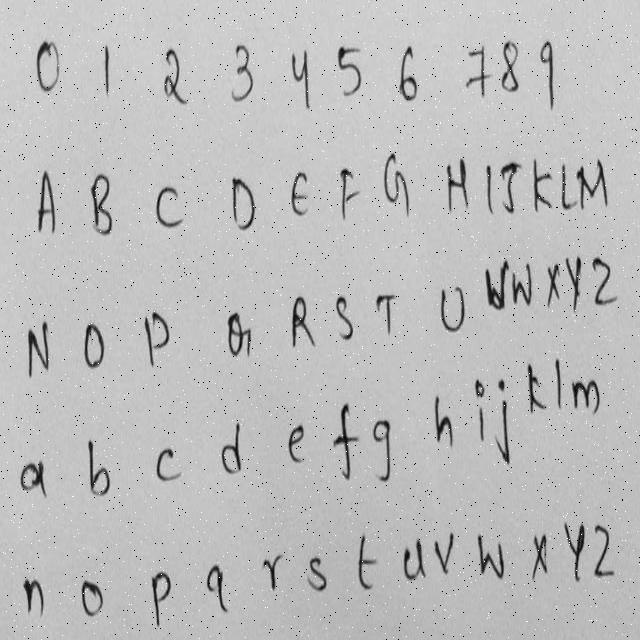 0 1 2 3 4 5 6 7 8 9
A B C D E F G H I J K L M
N O P Q R S T U W W X Y Z
a b c d e f g h i j k l m
n o p q r s t u v w x y z